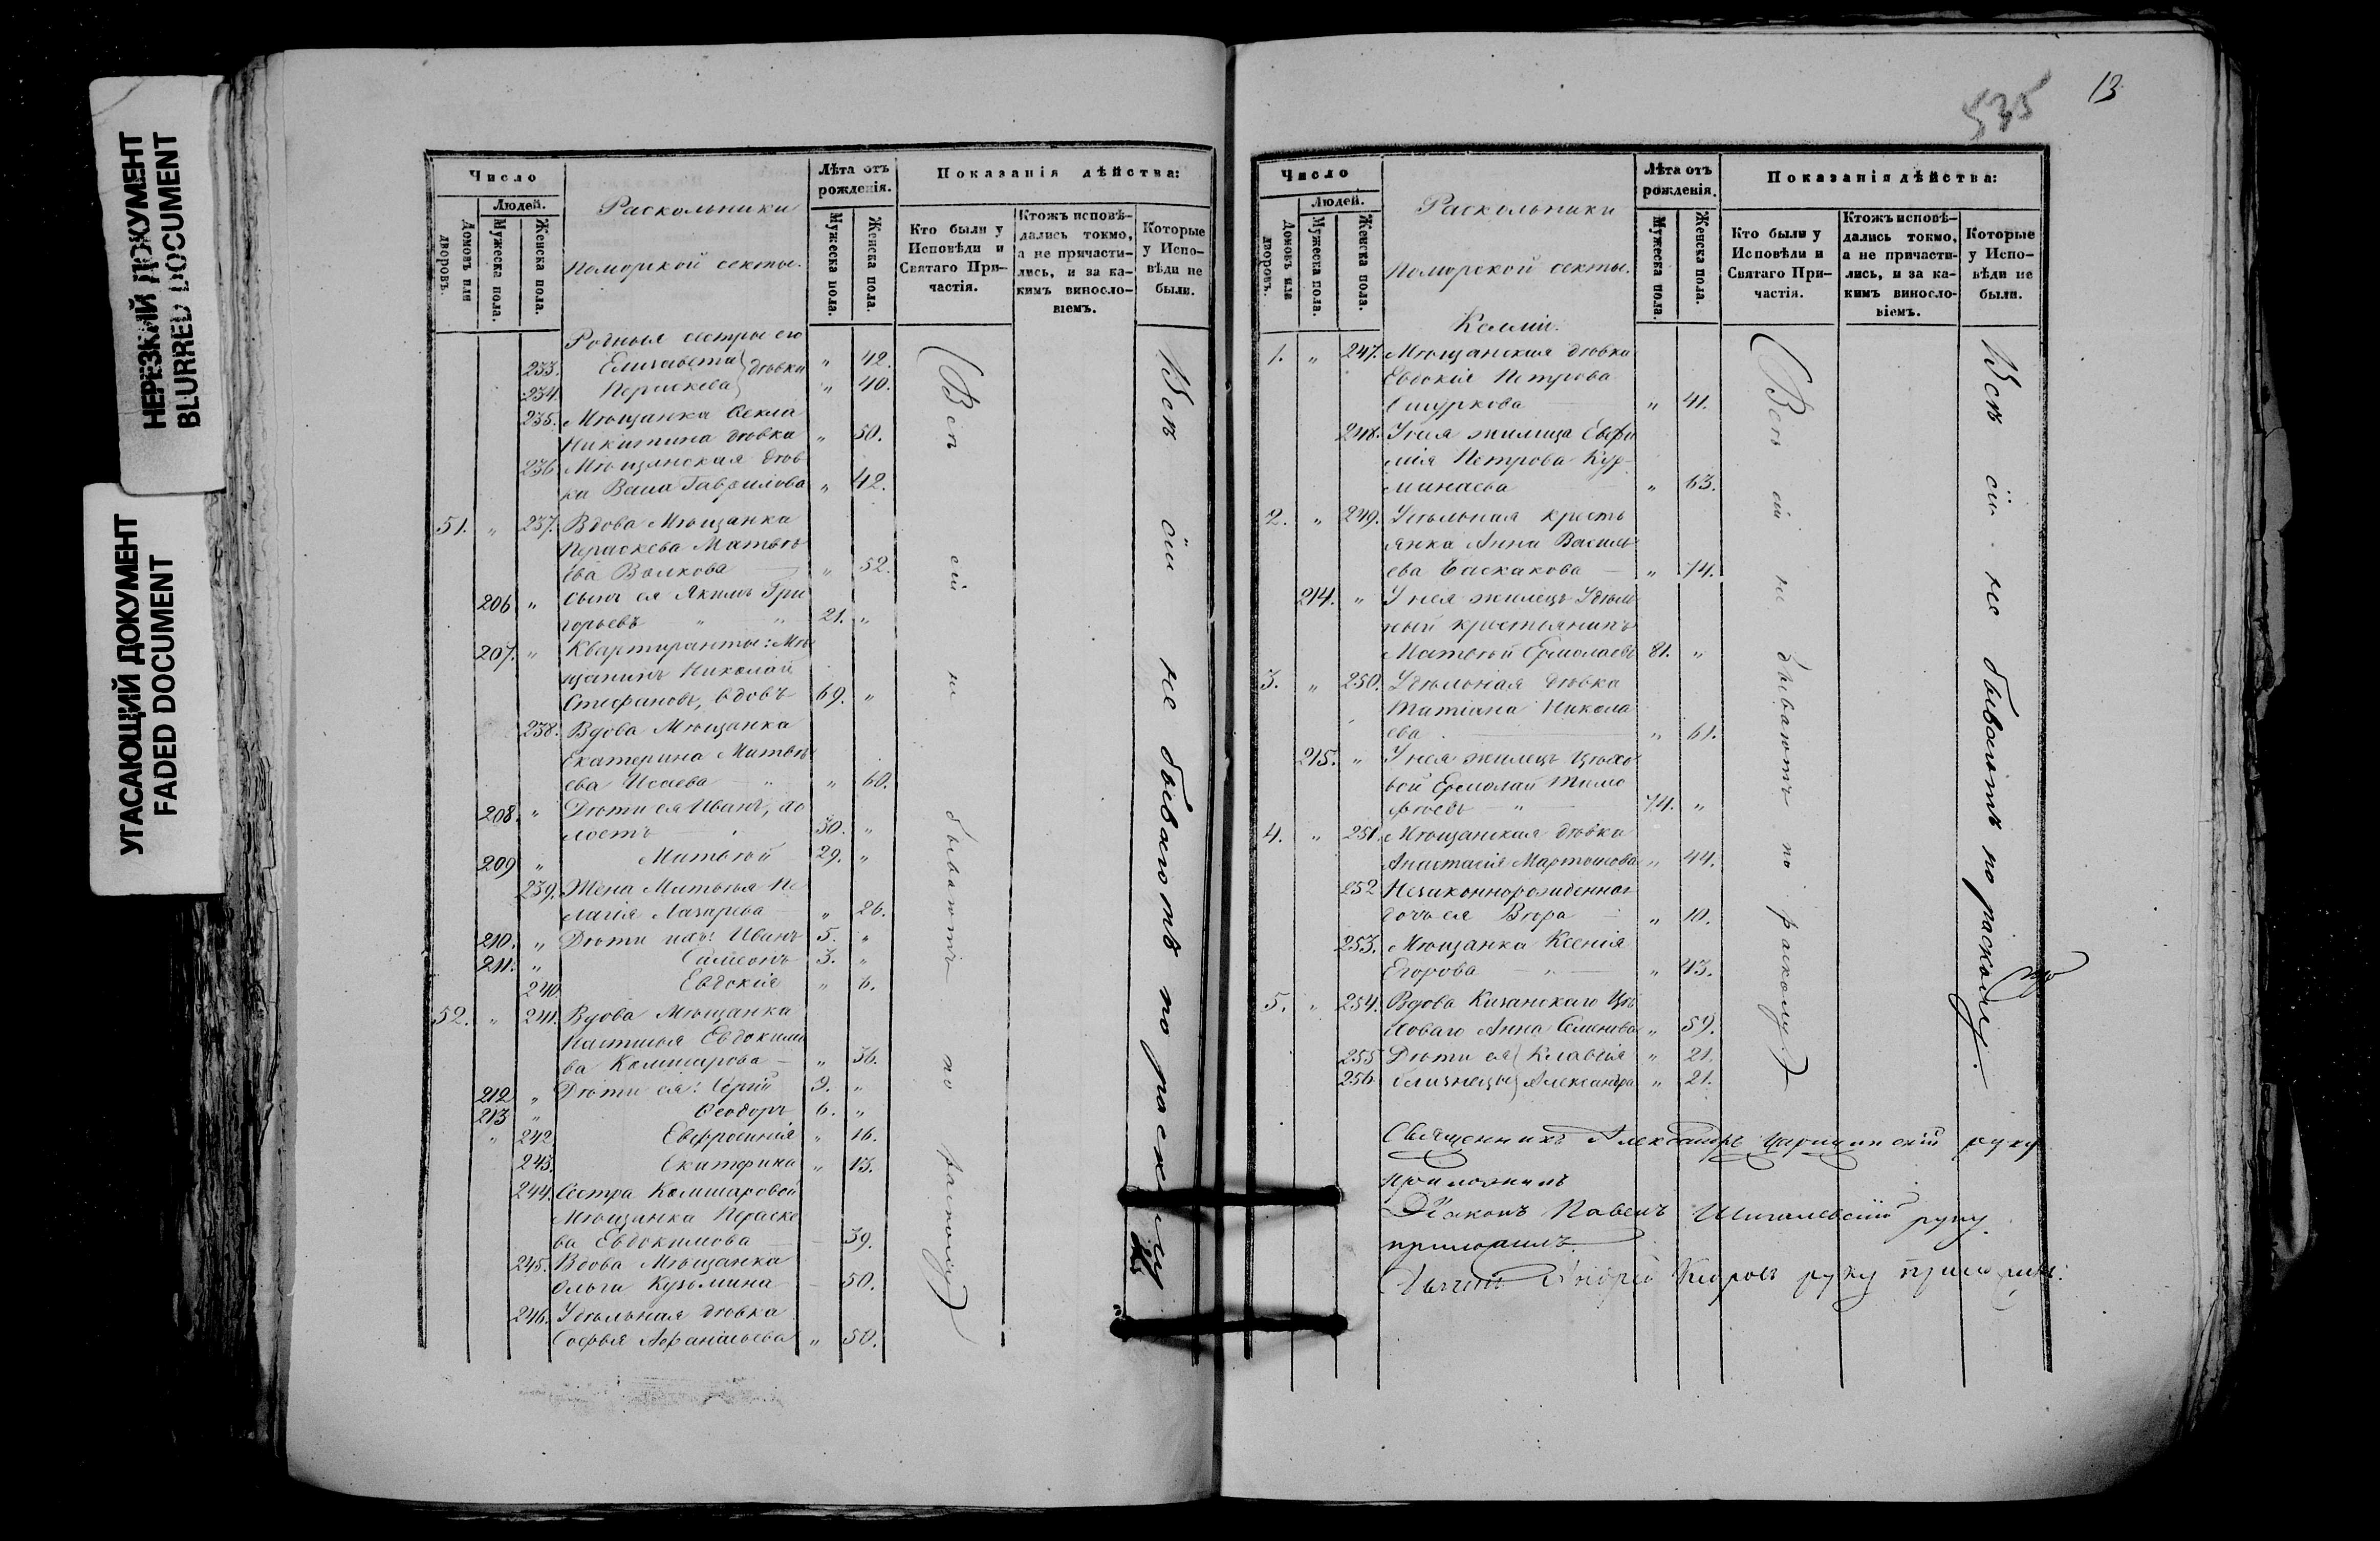 НЕРЕЗКИЙ ДОКУМЕНТ
BLURRED DOCUMENT
УГАСАЮЩИЙ ДОКУМЕНТ
FADED DOCUMENT
Число
Людей.
Домовъ или дворовъ.
Мужеска пола.
Женска пола.
Раскольники
поморской секты.
Лѣта отъ рожденія.
Мужеска пола.
Женска пола.
Показанія дѣйства:
Кто были у Исповѣди и Святаго Причастія.
Ктожъ исповѣ-
дались токмо,
а не причасти-
лись, и за ка-
кимъ винословіемъ.
Которые
у Испо-
вѣди не
были.
Родныя сестры его
233. Елисавета } дѣвки " 42.
234. Параскева " 40.
235. Мѣщанка Ѳекла
Никитина дѣвка " 50.
236. Мѣщанская дѣв
ка Васса Гаврилова " 42.
51. " 237. Вдова Мѣщанка
Параскева Матвѣ
ева Волкова " 52.
206 " Сынъ ея Якимъ Гри
горьевъ " " 21. "
207. " Квартиранты: Мѣ
щанинъ Николай
Стефановъ, вдовъ 69. "
238. Вдова Мѣщанка
Екатерина Матвѣ
ева Исаева " " 60.
208. " Дѣти ея Иванъ, хо
лостъ 30. "
209 " Матвѣй 29. "
239. Жена Матвѣя Пе
лагія Лазарева " 26.
210. " Дѣти ихъ: Иванъ 5. "
211. " Симеонъ 3. "
240. Евдокія " 6.
52. " 241. Вдова Мѣщанка
Настасья Евдокимо
ва Комисарова " 36.
212 " Дѣти ея: Сергій 9. "
213 " Ѳеодоръ 6. "
" 242. Евфросинія " 16.
243. Екатерина " 13.
244. Сестра Комисаровой
Мѣщанка Параске
ва Евдокимова 39.
245. Вдова Мѣщанка
Ольга Кузьмина 50.
246. Удѣльная дѣвка
Софья Афанасьева " 50.
Всѣ сіи не бываютъ по расколу
Всѣ сіи не бываютъ по расколу
535
13
Число
Людей.
Домовъ или дворовъ.
Мужеска пола.
Женска пола.
Раскольники
поморской секты.
Лѣта отъ рожденія.
Мужеска пола.
Женска пола.
Показанія дѣйства:
Кто были у Исповѣди и Святаго Причастія.
Ктожъ исповѣ-
дались токмо,
а не причасти-
лись, и за ка-
кимъ винословіемъ.
Которые
у Испо-
вѣди не
были.
Келліи.
1. " 247. Мѣщанская дѣвка
Евдокія Петрова
" 41.
248. У нея жилица Евфи
мія Петрова Кур-
" 63.
2. " 249. Удѣльная кресть
янка Анна Василь
ева Баскакова " 74.
214. " У нея жилецъ Удѣль
ный крестьянинъ
Матвѣй Ермолаевъ 81. "
3. " 250. Удѣльная дѣвка
Татіана Никола
ева " 61.
215. " У нея жилецъ Цѣхо
вой Ермолай Тимо
фѣевъ " 74. "
4. " 251. Мѣщанская дѣвка
Анастасія Мартынова " 44.
252 Незаконнорожденная
дочь ея Вѣра " 10.
253. Мѣщанка Ксенія
Егорова " " 43.
5. " 254. Вдова Казанскаго Цѣ
ховаго Анна Семенова " 59.
255 Дѣти ея } Клавдія " 21.
256 близнецы } Александра " 21.
Всѣ сіи не бываютъ по расколу
Всѣ сіи не бываютъ по расколу.
Священникъ Александръ Царицынскій руку
приложилъ
Діаконъ Павелъ руку
приложилъ.
Андрей руку приложилъ.